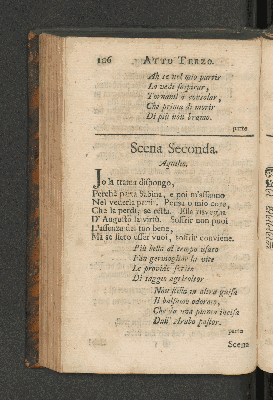 106 ATTO TERZO.
Ah se nel mio partir
La vedi sospirar,
Tornami a consolar,
Che prima di morir
Di più non bramo.
parte
Scena Seconda.
Aquilio.
Io la trama dispongo,
Perchè parta Sabina, e poi m'affanno
Nel vederla partir. Pensa o mio core,
Che la perdi, se resta. Ella risveglia
D'Augusto la virtù. Soffrir non puoi
L'assenza del tuo bene,
Ma se lieto esser vuoi, soffrir conviene.
Più bella al tempo usato
Fan germogliar la vite
Le provide ferite
Di saggio agricoltor
Non stilla in altra guisa
Il balsamo odorato,
Che da una pianta incisa
Dall' Arabo pastor.
parte
Scena